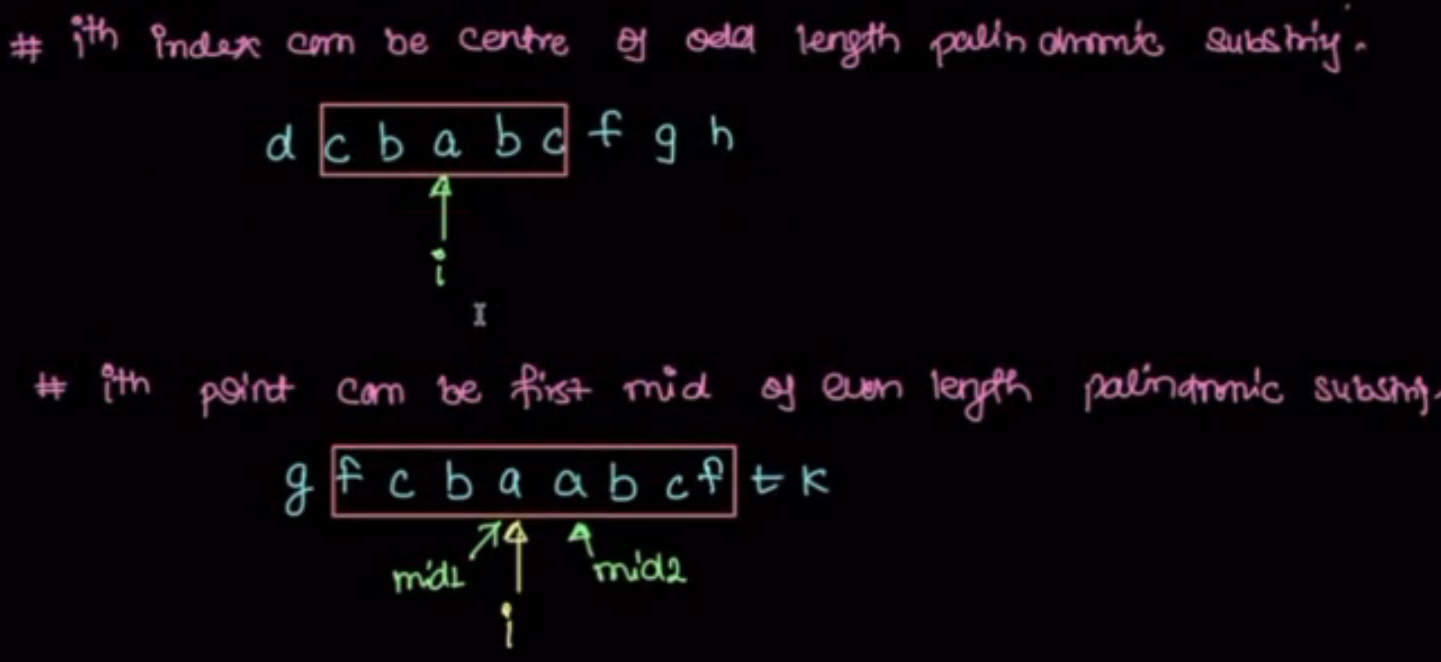 # ith index can be centre of odd length palindromic substring.
d c b a b c f g h
i
# ith point can be first mid of even length palindromic substring.
g f c b a a b c f t k
mid1 mid2
i